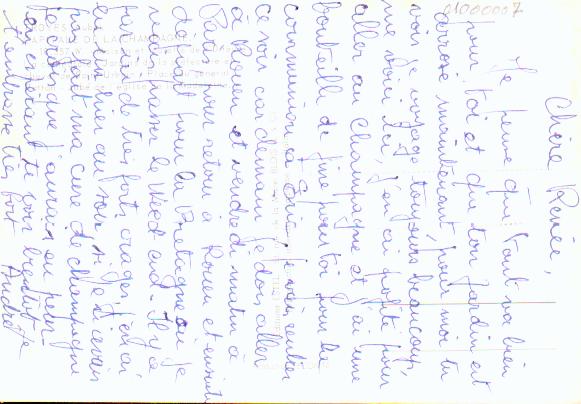 01000007
Chère Renée,
Je pense que tout va bien
pour toi et que ton jardin est
arrosé maintenant, pour moi tu
vois je voyage toujours beaucoup,
me voici ici, j'en ai profité pour
aller au Champagne et j'ai une
bouteille de fine pour toi pour la
communion à Eric, je vais rentrer
ce soir car demain je dois aller
à Rouen et vendredi matin à
Paris pour retour à Rouen et ensuite
départ pour la Bretagne où je
passer le Week end. Il y a
de très forts orages, j'en ai
hier au soir si je
fait ma cure de champagne
je crois que j'aurais eu peur.
En espérant te voir bientôt
J'embrasse très fort